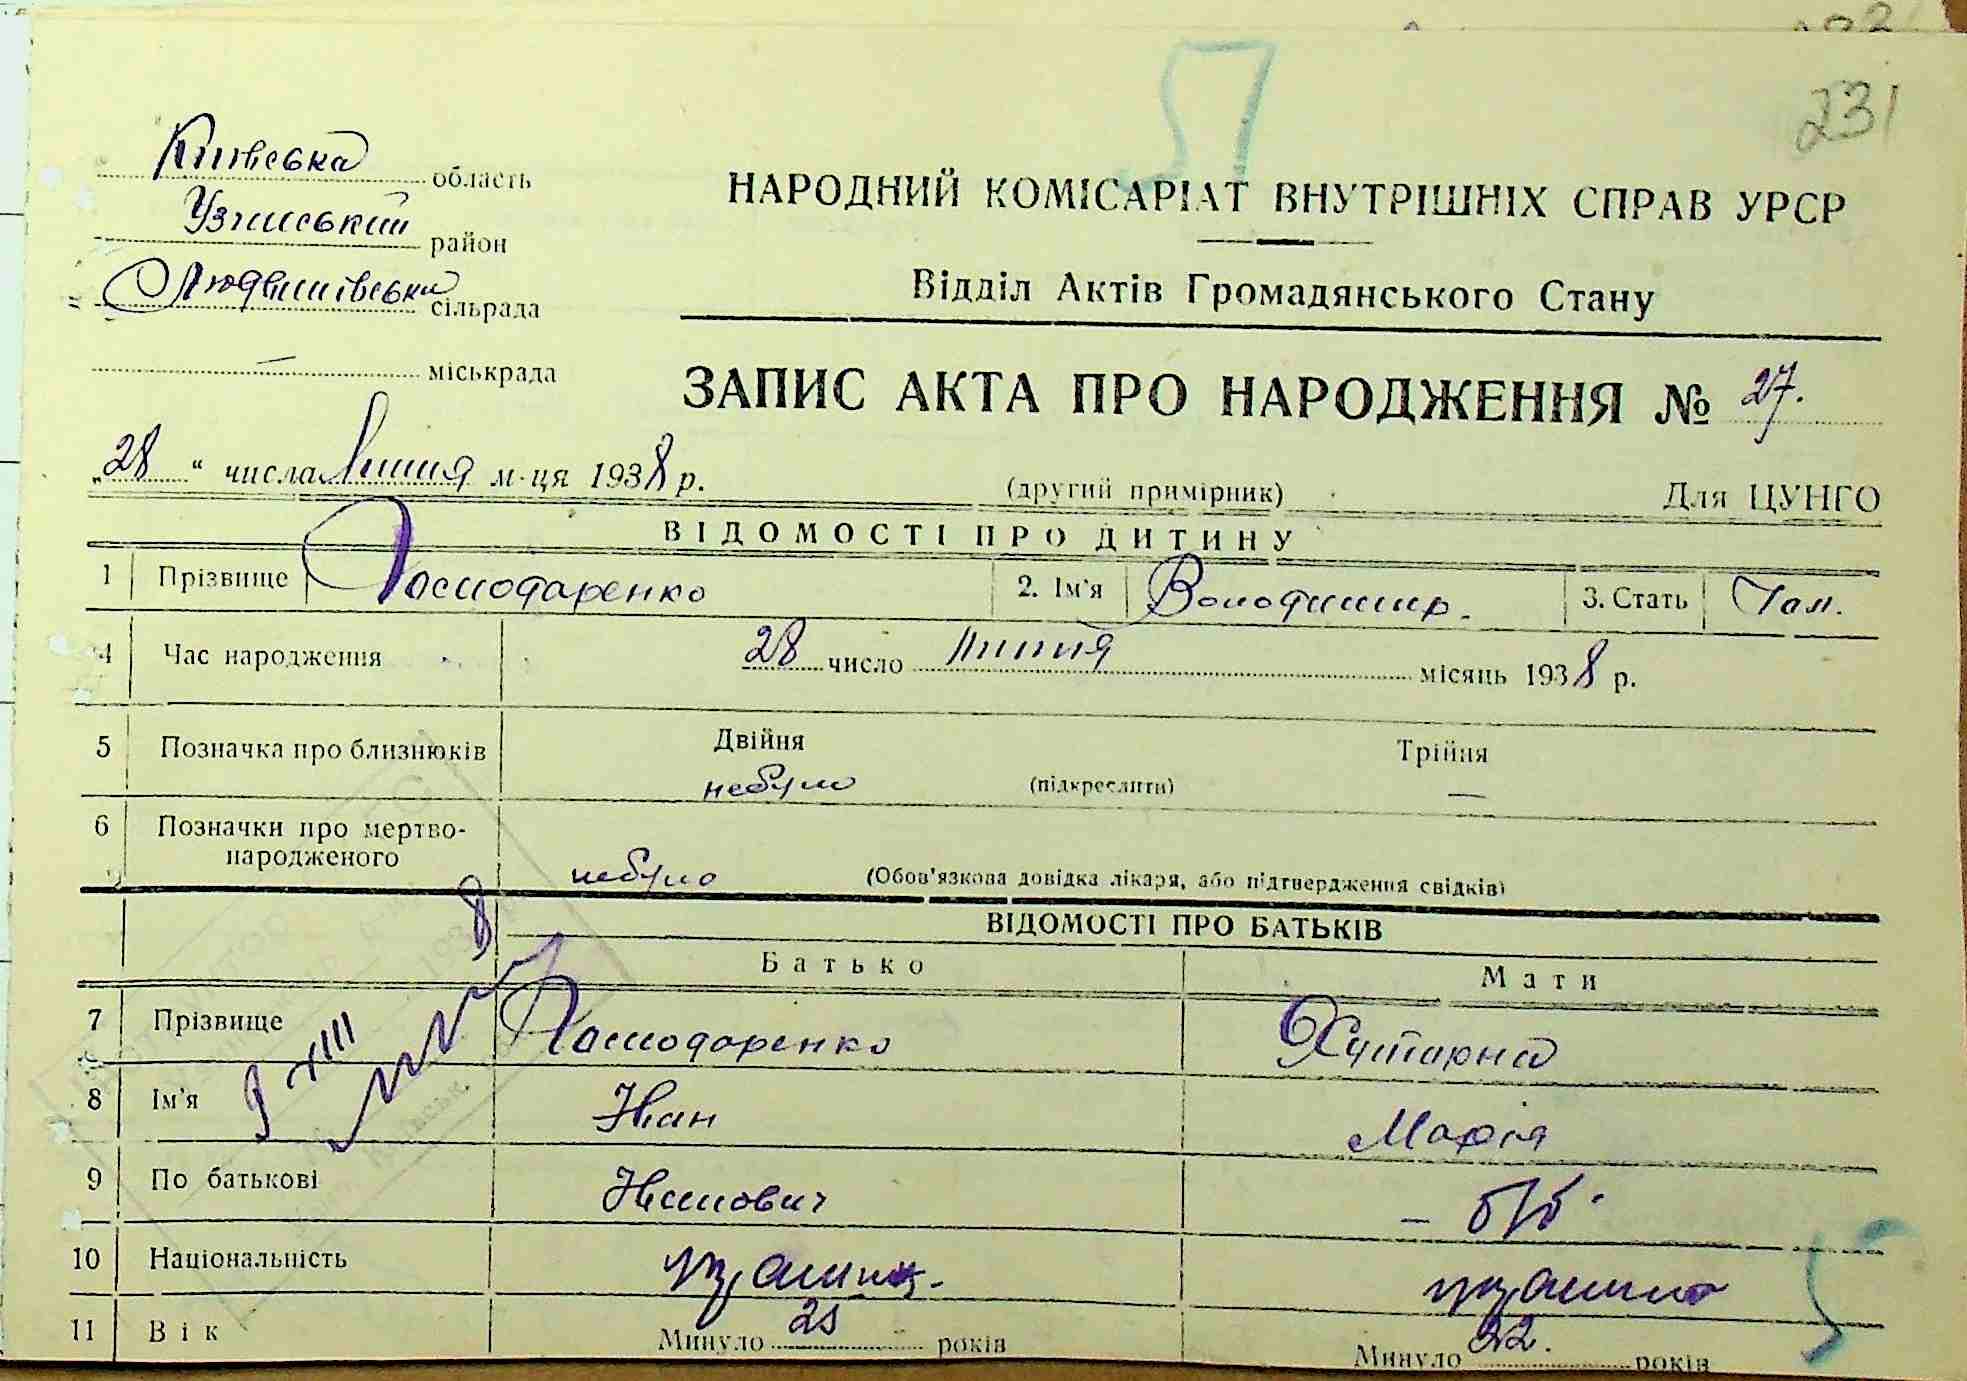 231
Київська область
Узинський район
сільрада
— міськрада
НАРОДНИЙ КОМІСАРІАТ ВНУТРІШНІХ СПРАВ УРСР
Відділ Актів Громадянського Стану
ЗАПИС АКТА ПРО НАРОДЖЕННЯ № 27.
„28“ числа липня м-ця 1938 р.
(другий примірник)
Для ЦУНГО
ВІДОМОСТІ ПРО ДИТИНУ
1 Прізвище Господаренко 2. Ім'я Володимир. 3. Стать Чол.
4 Час народження 28 число липня місяць 1938 р.
5 Позначка про близнюків Двійня небуло (підкреслити) Трійня —
6 Позначки про мертво-
народженого небуло (Обов'язкова довідка лікаря, або підтвердження свідків)
ВІДОМОСТІ ПРО БАТЬКІВ
Батько Мати
7 Прізвище Господаренко Хуторна
8 Ім'я Іван Марія
9 По батькові Іванович
10 Національність
11 Вік Минуло років Минуло 22. років